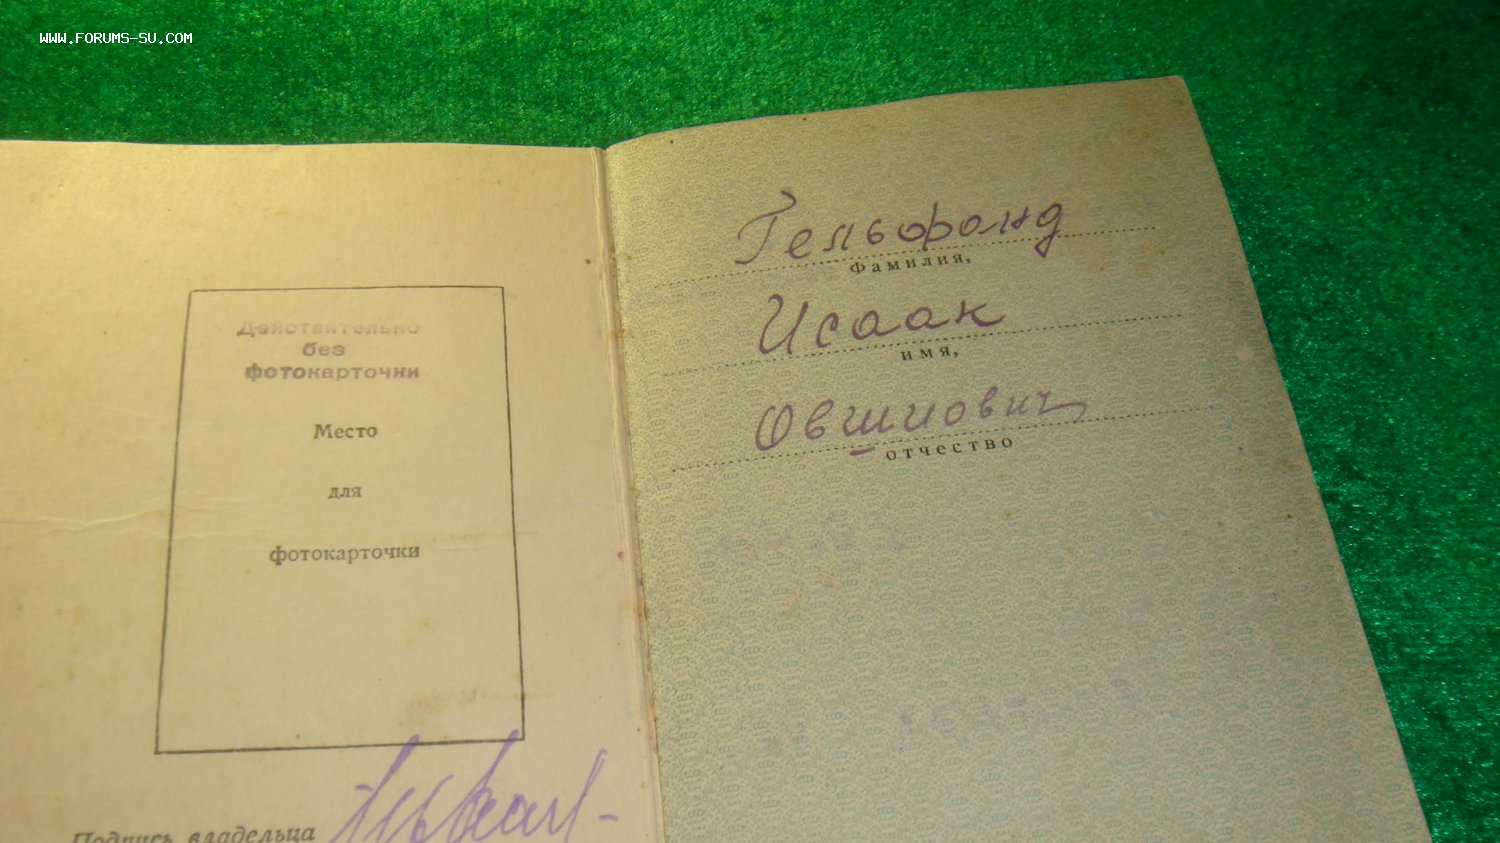 WWW.FORUMS-SU.COM
Действительно
без
фотокарточки
Место
для
фотокарточки
Подпись владельца
Гельфонд
Фамилия,
Исаак
имя,
Овшиович
отчество